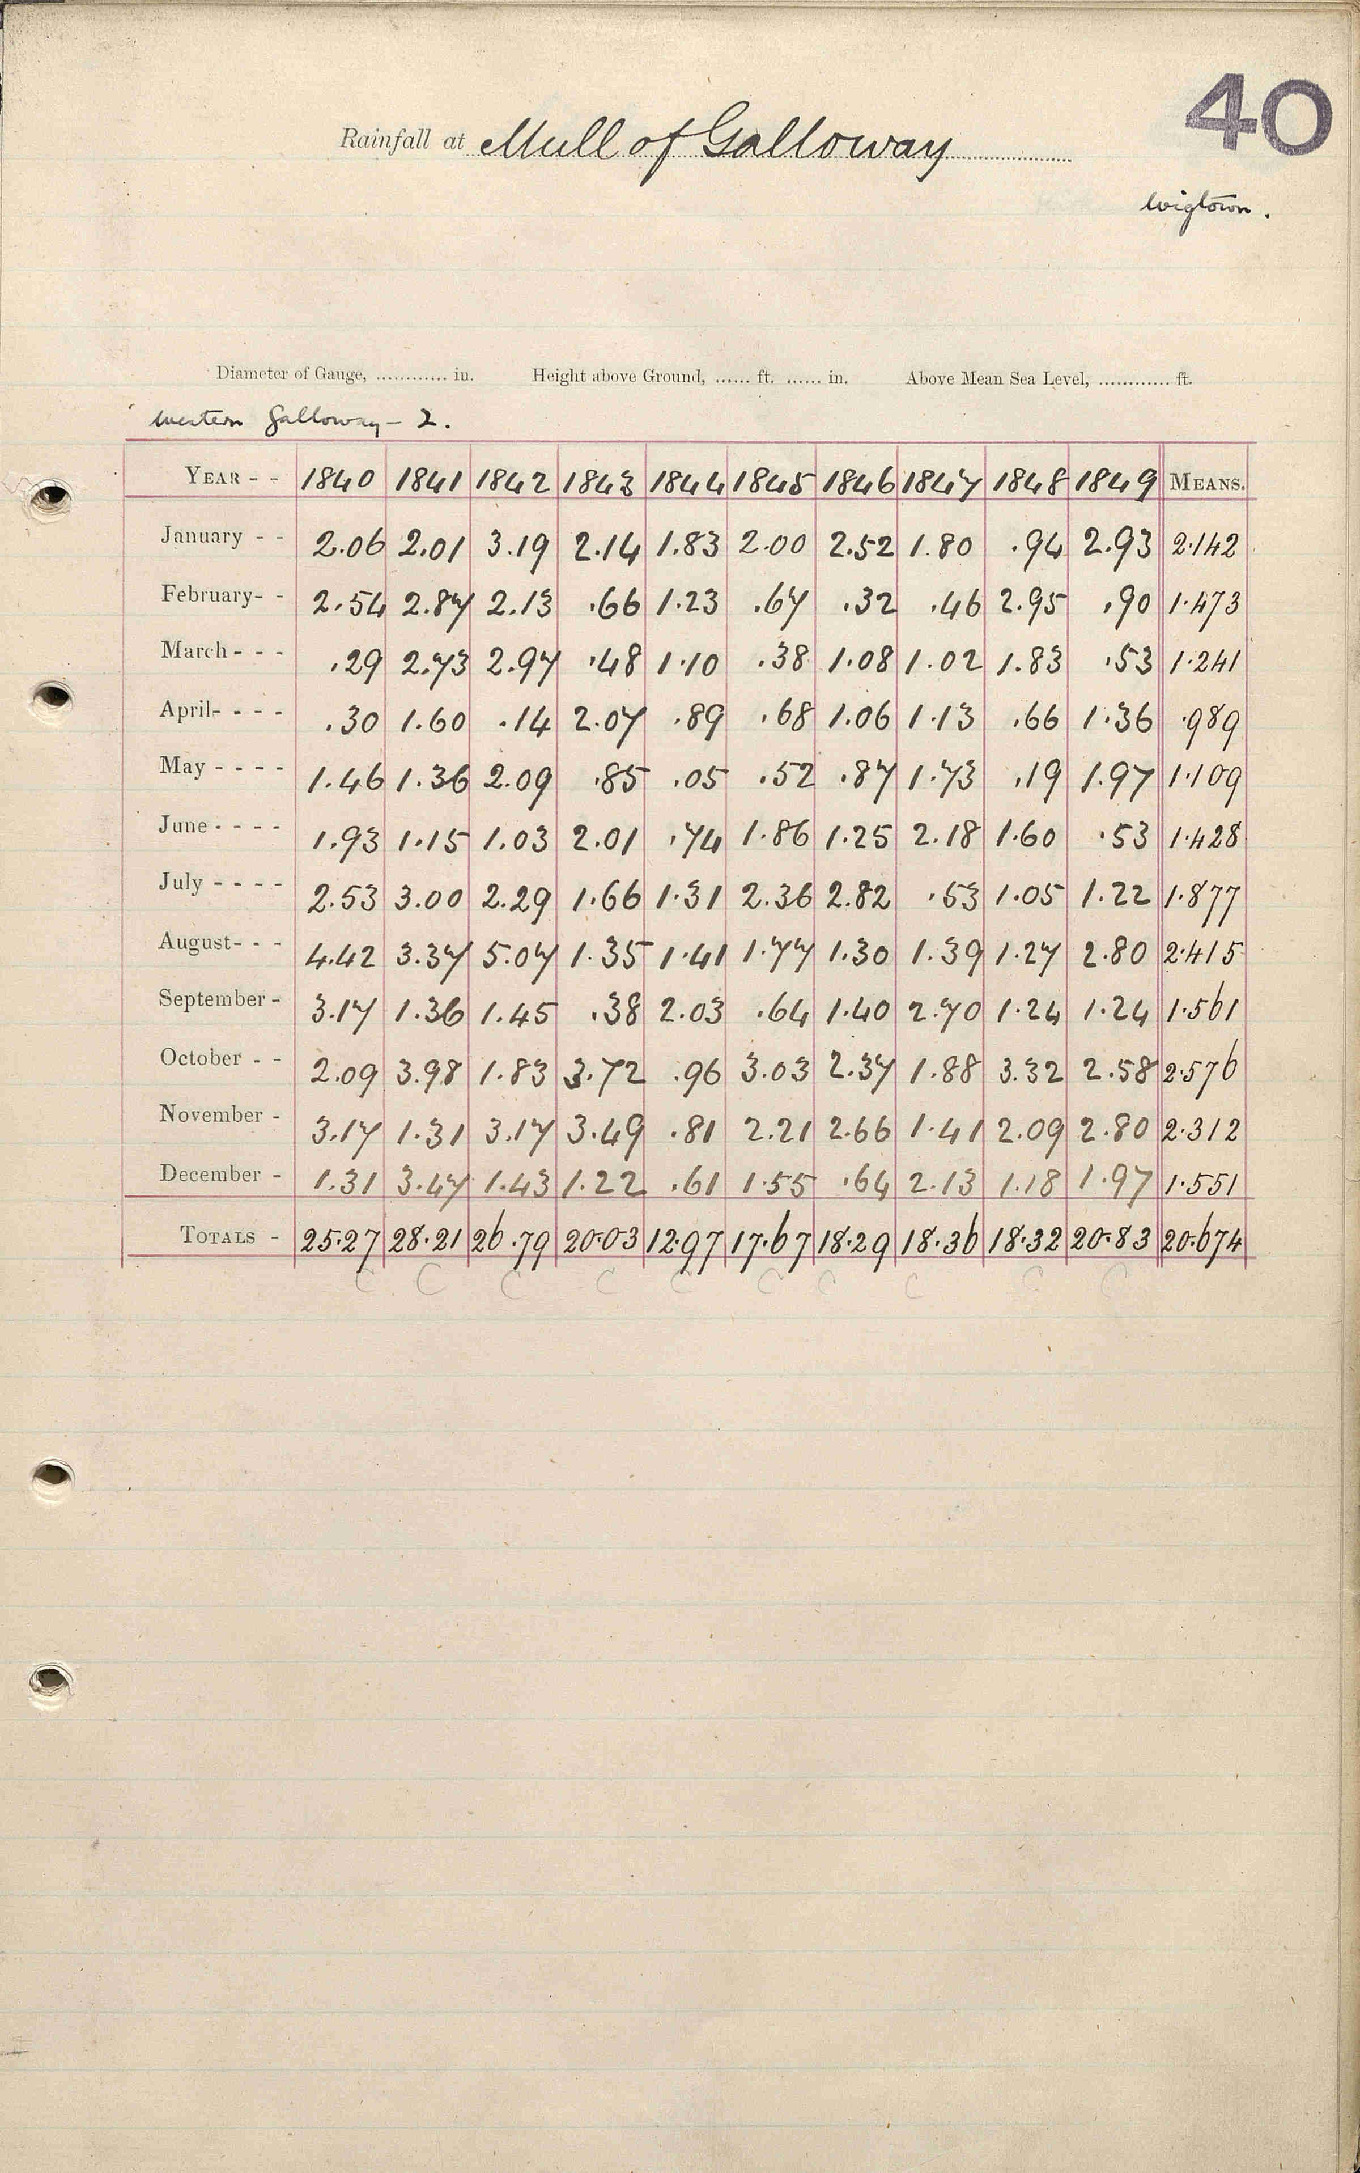 40
Rainfall at Mull of Galloway
Wigtown.
Diameter of Gauge, ............ in. Height above Ground, ...... ft. ...... in. Above Mean Sea Level, ............ ft.
Western Galloway - 2.
YEAR - - 1840 1841 1842 1843 1844 1845 1846 1847 1848 1849 MEANS.
January - - 2.06 2.01 3.19 2.14 1.83 2.00 2.52 1.80 .94 2.93 2.142
February- - 2.54 2.87 2.13 .66 1.23 .67 .32 .46 2.95 .90 1.473
March - - - .29 2.73 2.97 .48 1.10 .38 1.08 1.02 1.83 .53 1.241
April- - - - .30 1.60 .14 2.07 .89 .68 1.06 1.13 .66 1.36 .989
May - - - - 1.46 1.36 2.09 .85 .05 .52 .87 1.73 .19 1.97 1.109
June - - - - 1.93 1.15 1.03 2.01 .74 1.86 1.25 2.18 1.60 .53 1.428
July - - - - 2.53 3.00 2.29 1.66 1.31 2.36 2.82 .53 1.05 1.22 1.877
August- - - 4.42 3.37 5.07 1.35 1.41 1.77 1.30 1.39 1.27 2.80 2.415
September - 3.17 1.36 1.45 .38 2.03 .64 1.40 2.70 1.24 1.24 1.561
October - - 2.09 3.98 1.83 3.72 .96 3.03 2.37 1.88 3.32 2.58 2.576
November - 3.17 1.31 3.17 3.49 .81 2.21 2.66 1.41 2.09 2.80 2.312
December - 1.31 3.47 1.43 1.22 .61 1.55 .64 2.13 1.18 1.97 1.551
TOTALS - 25.27 28.21 26.79 20.03 12.97 17.67 18.29 18.36 18.32 20.83 20.674
C C C C C C C C C C